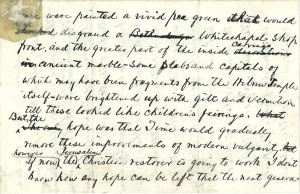 me were painted a vivid pea green that would
disgraced a Whitechapel Shop
front, and the greater part of the inside carvings
in ancient marble - Some Slabs and Capitals of
which may have been fragments from the Hebrew Temple
itself - were brightened up with gilt and Vermilion
till these looked like children's fairings. What
But the
hope was that Time would gradually
remove these improvements of modern vulgarity, but
however Jerusalem
if now the Christian restorer is going to work I don't
know how any hope can be left that the next genera